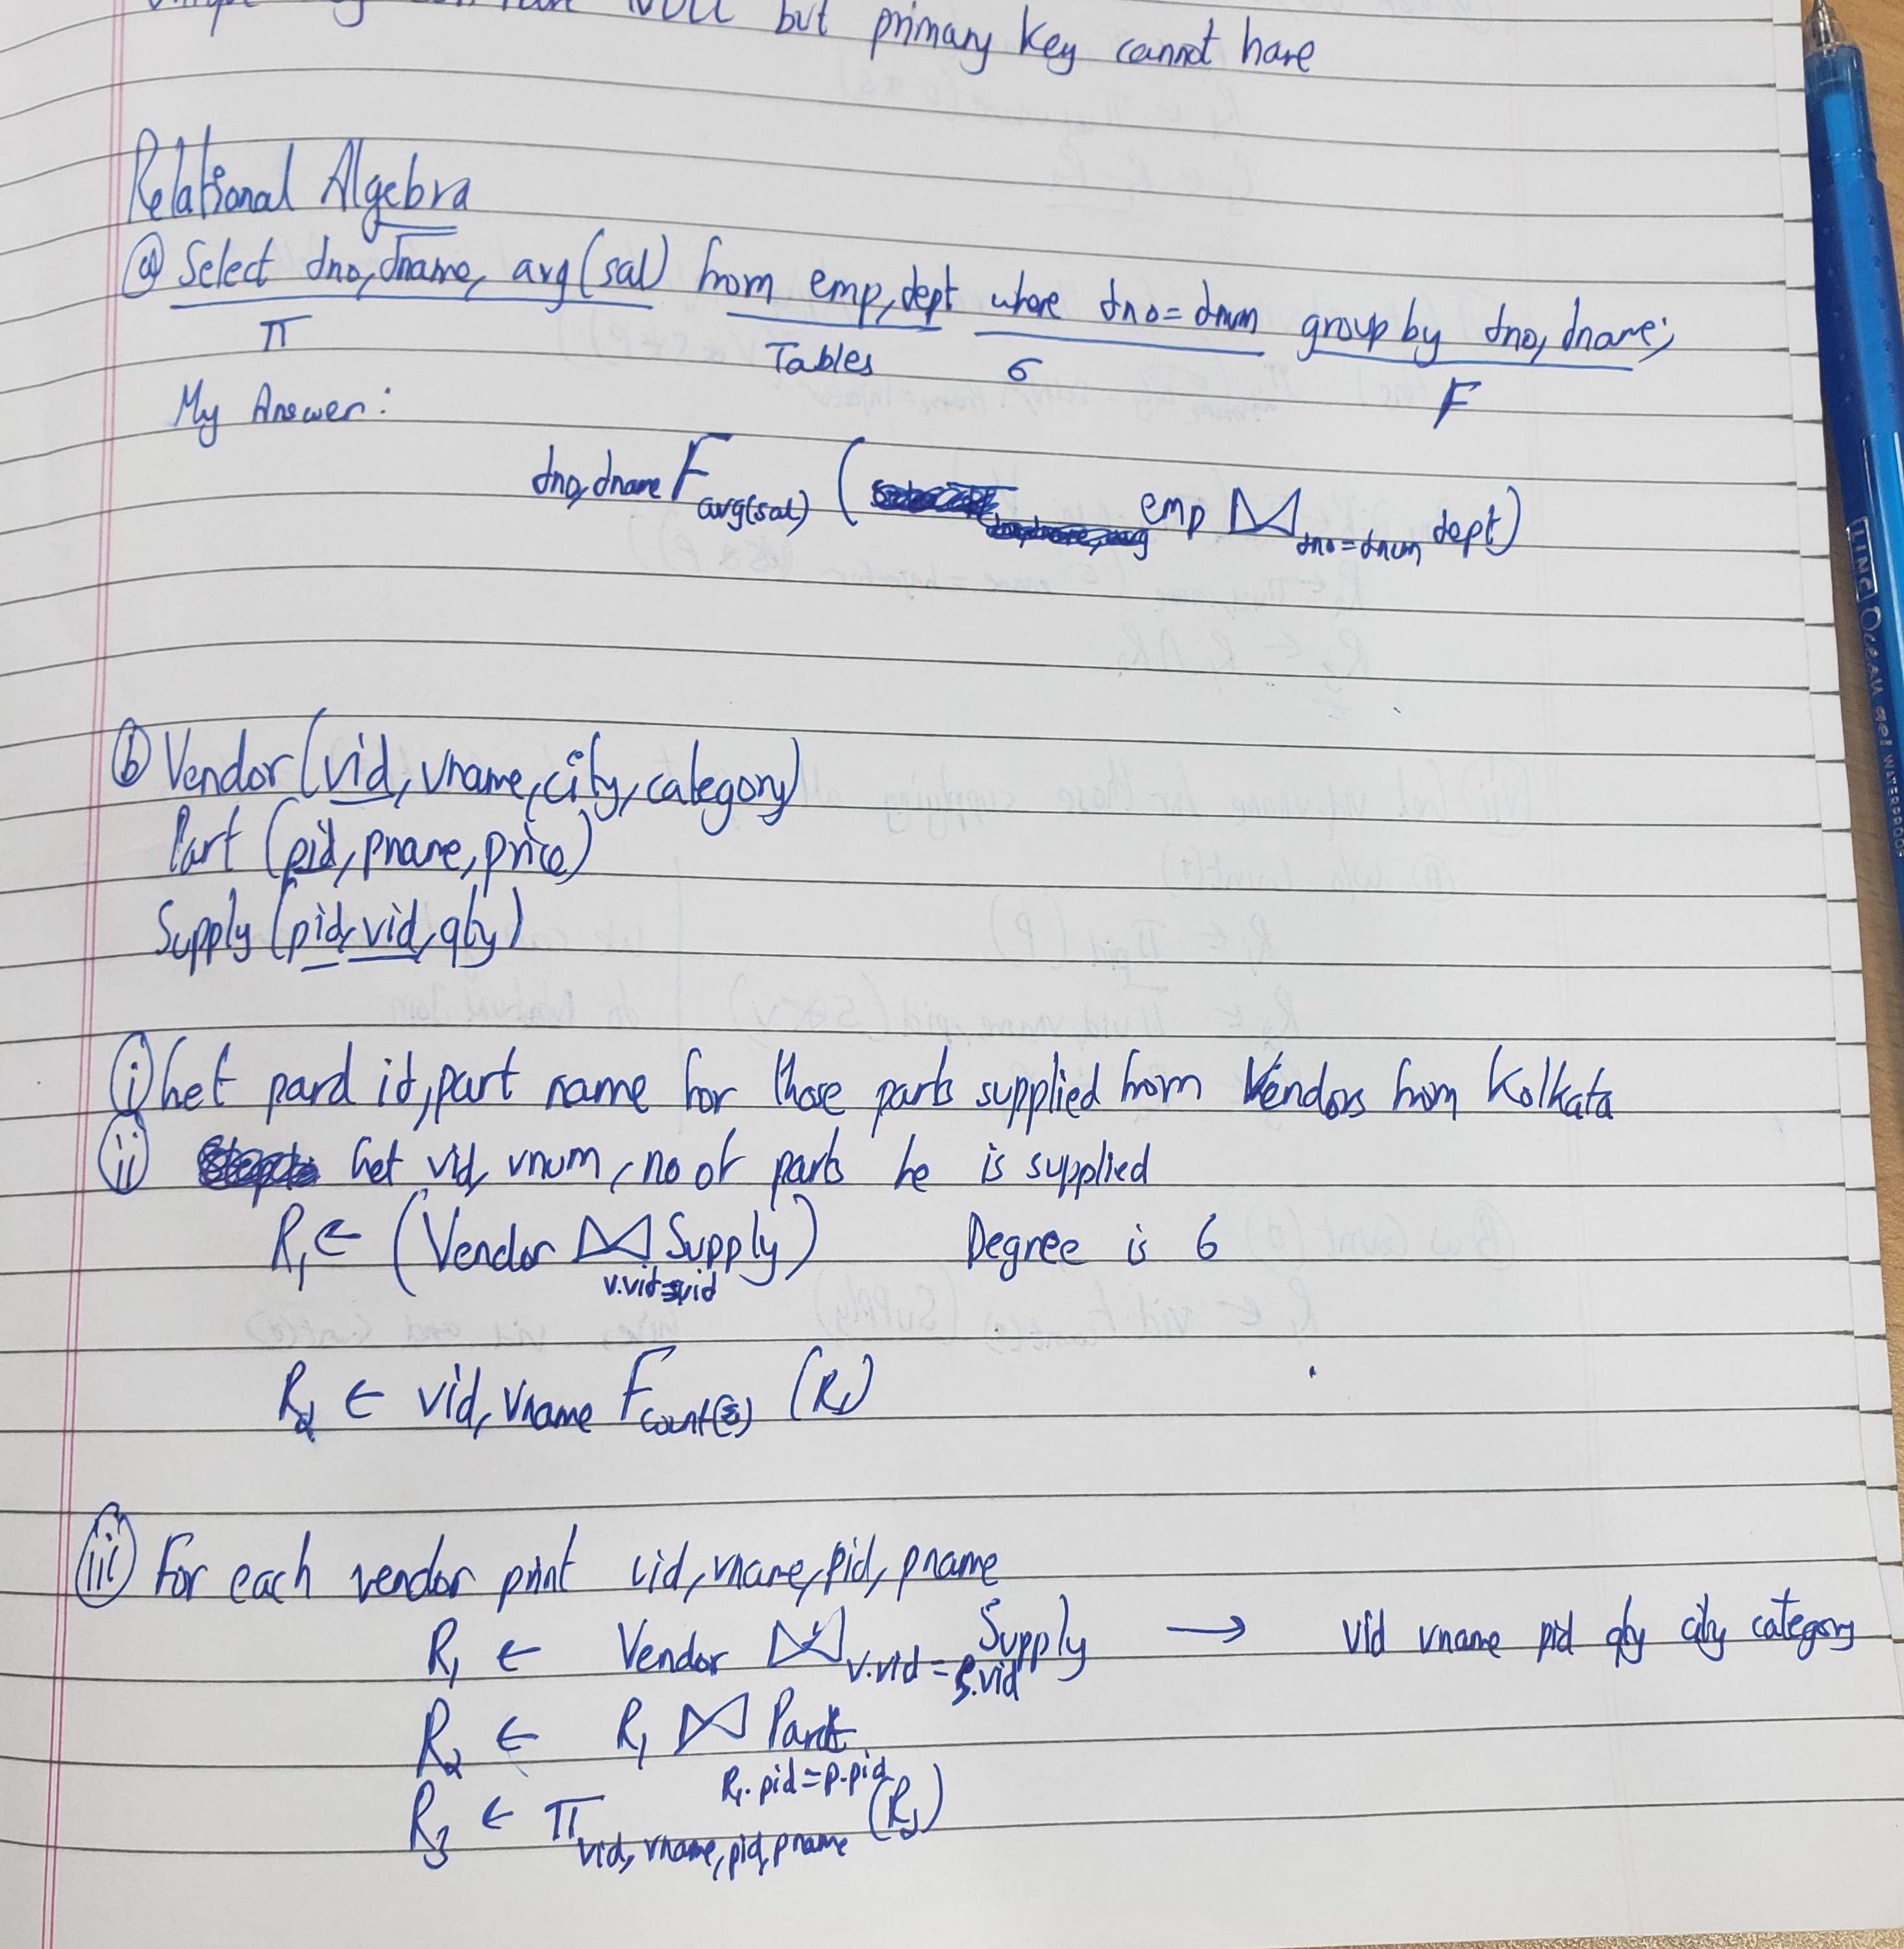 NULL but primary key cannot have
Relational Algebra
(a) Select dno, dname, avg(sal) from emp, dept where dno = dnum group by dno, dname;
π Tables σ F
My Answer:
dno, dname F avg(sal) ( emp ⋈ dno = dnum dept)
(b) Vendor (vid, vname, city, category)
Part (pid, pname, price)
Supply (pid, vid, qty)
(i) Get pard id, part name for those parts supplied from Vendors from Kolkata
(ii) Get vid, vnum, no of parts he is supplied
R1 ← (Vendor ⋈ Supply) Degree is 6
v.vid=s.vid
R2 ← vid, vname F count( ) (R1)
(iii) For each vendor print vid, vname, pid, pname
R1 ← Vendor ⋈ v.vid = s.vid Supply → vid vname pid qty city category
R2 ← R1 ⋈ Part
R1.pid = p.pid
R3 ← π vid, vname, pid, pname (R2)
LINC OCEAN gel WATERPROOF